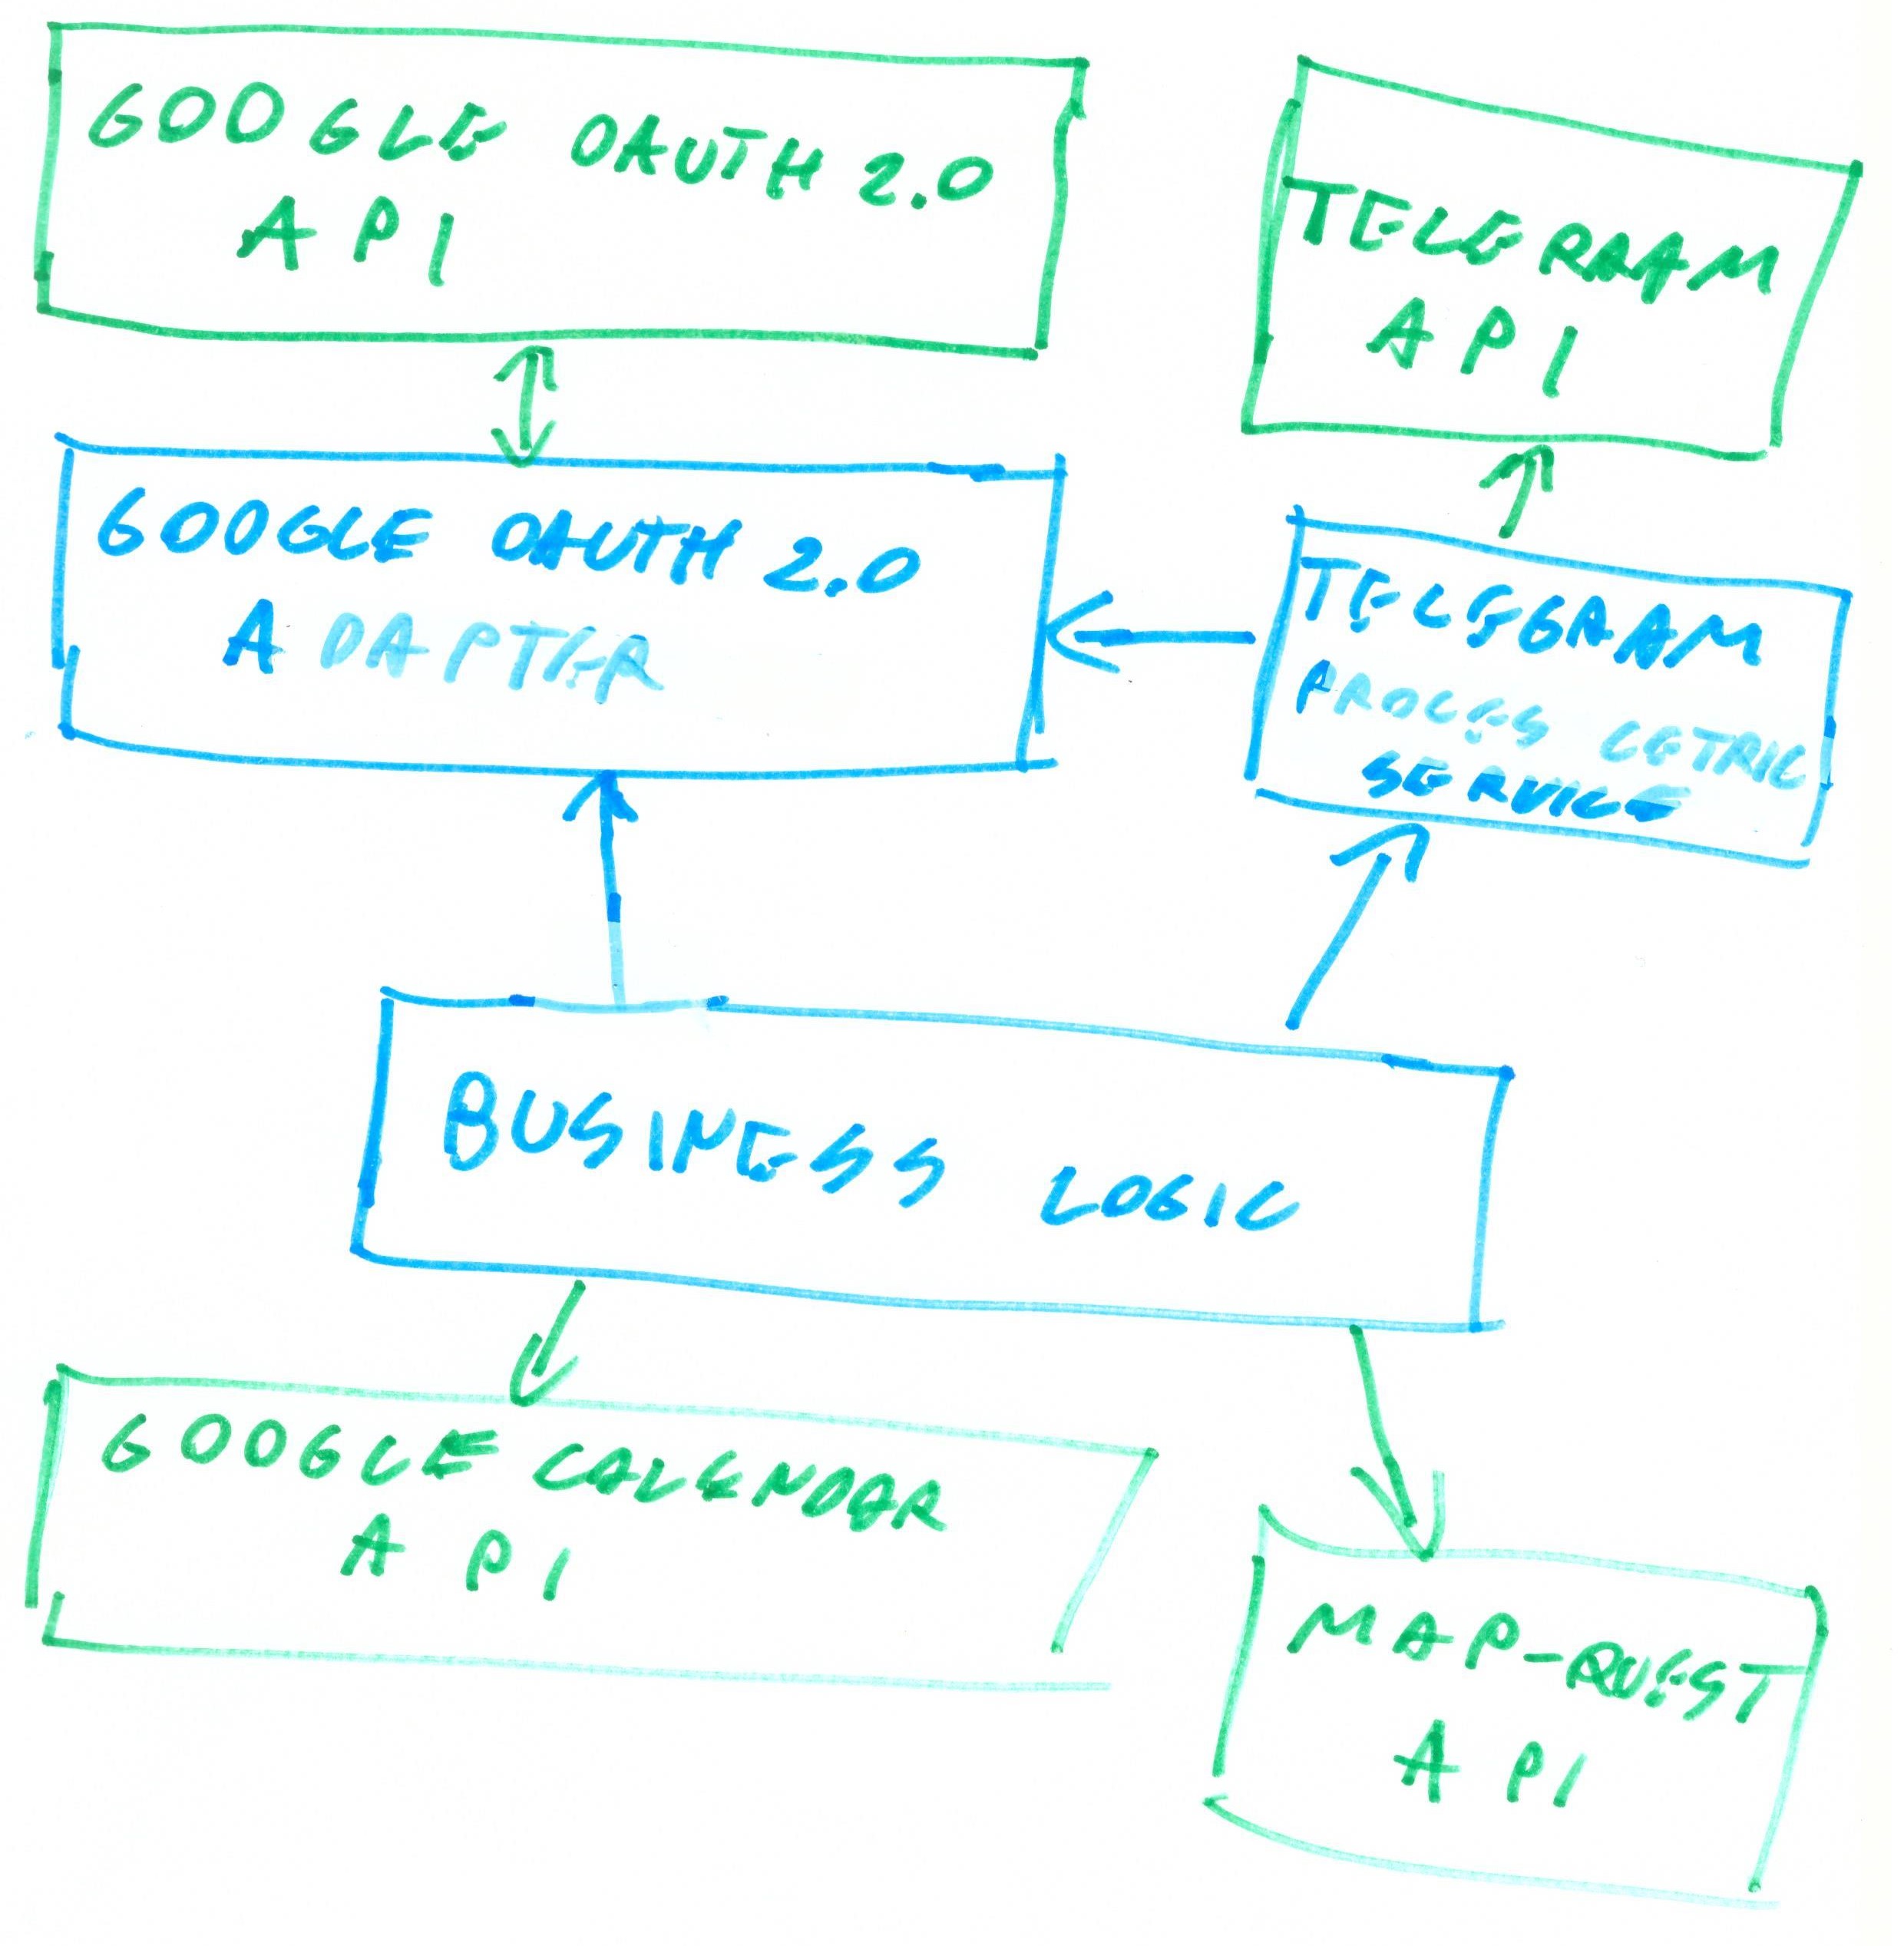 GOOGLE OAUTH 2.0
API
TELERAAM
API
GOOGLE OAUTH 2.0
ADAPTER
TELEGRAM
PROCESS CETRIC
SERVICE
BUSINESS LOGIC
GOOGLE CALENDAR
API
MAP-QUEST
API